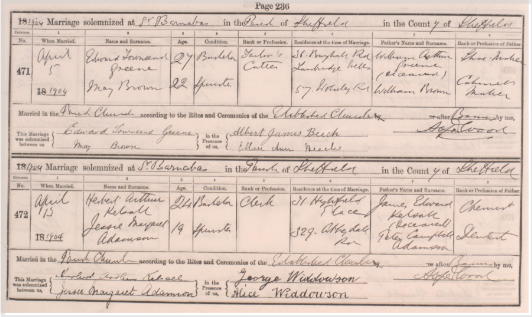 Page 236
1904 Marriage solemnized at St Barnabas in the Parish of Sheffield in the County of Sheffield
No. When Married. Name and Surname. Age. Condition. Rank or Profession. Residence at the time of Marriage. Father's Name and Surname. Rank or Profession of Father.
471 April 5 1904
Edward Townsend Greene 27 Bachelor Cutter
William Arthur Greene (deceased)
May Brown 22 Spinster 57 William Brown Cabinet Maker
Married in the Parish Church according to the Rites and Ceremonies of the Established Church or after Banns by me,
This Marriage was solemnized between us, Edward Townsend Greene May Brown in the Presence of us, Albert James Beech Ellen Ann
1904 Marriage solemnized at St Barnabas in the Parish of Sheffield in the County of Sheffield
No. When Married. Name and Surname. Age. Condition. Rank or Profession. Residence at the time of Marriage. Father's Name and Surname. Rank or Profession of Father.
472 April 1904
Herbert Arthur 24 Bachelor Clerk 31 Highfield Place James Edward (deceased) Chemist
Jessie Margaret Adamson 19 Spinster 329 Abbeydale Rd Peter Campbell Adamson Dentist
Married in the Parish Church according to the Rites and Ceremonies of the Established Church or after Banns by me,
This Marriage was solemnized between us, Herbert Arthur Jessie Margaret Adamson in the Presence of us, George Widdowson Alice Widdowson